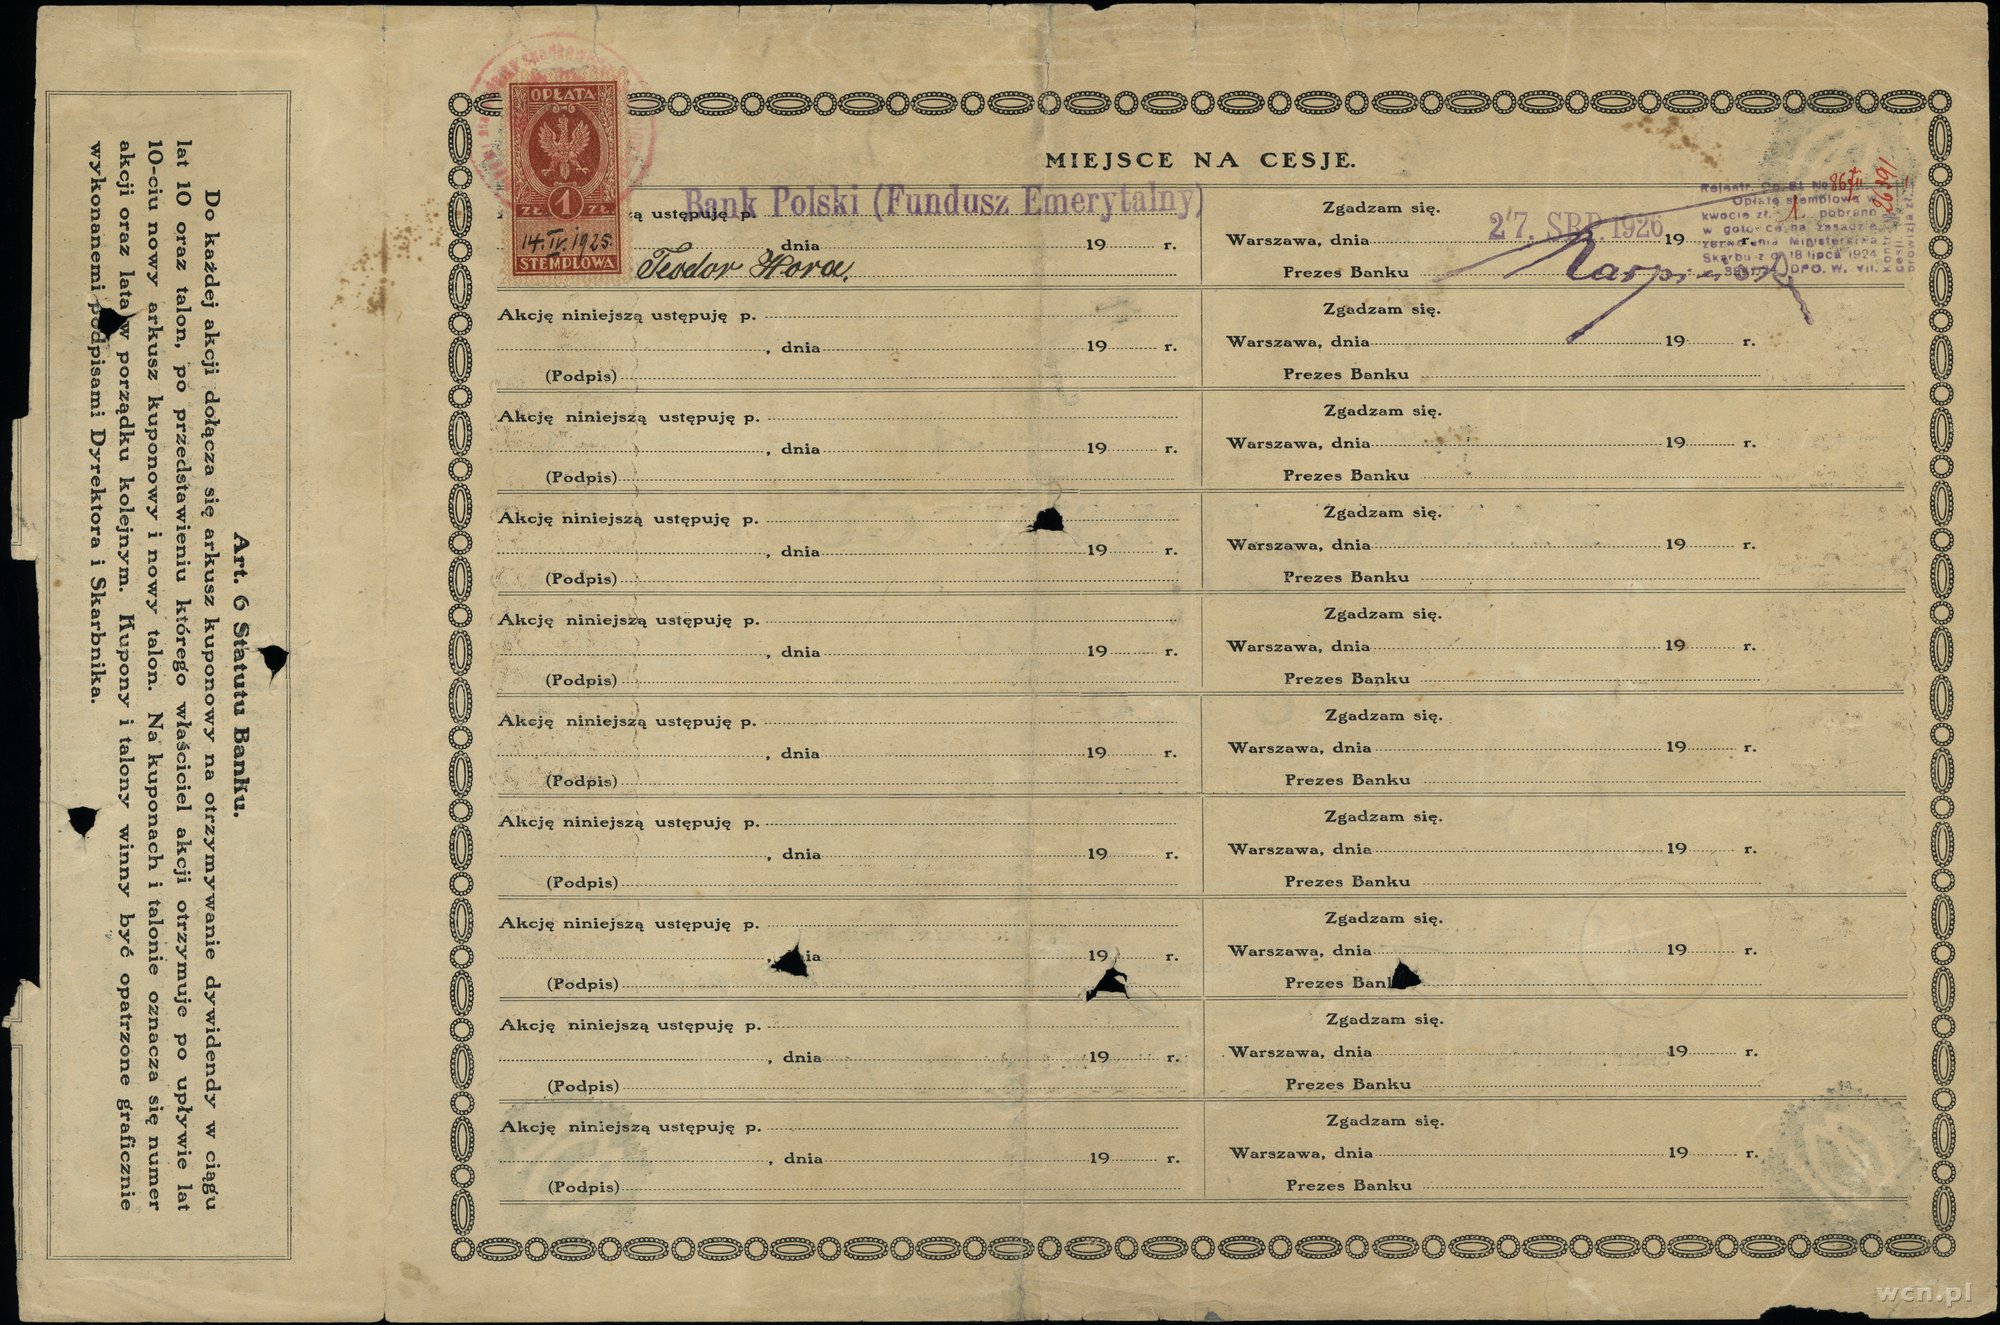 Art. 6 Statutu Banku.
Do każdej akcji dołącza się arkusz kuponowy na otrzymywanie dywidendy w ciągu
lat 10 oraz talon, po przedstawieniu którego właściciel akcji otrzymuje po upływie lat
10-ciu nowy arkusz kuponowy i nowy talon. Na kuponach i talonie oznacza się numer
akcji oraz lata w porządku kolejnym. Kupony i talony winny być opatrzone graficznie
wykonanemi podpisami Dyrektora i Skarbnika.
OPŁATA
ZŁ 1 ZŁ
14. IV. 1925.
STEMPLOWA
MIEJSCE NA CESJE.
ustępuję p. Bank Polski (Fundusz Emerytalny)
dnia 19 r.
Teodor Hora.
Zgadzam się.
Warszawa, dnia 27. SRP. 1926 19 r.
Prezes Banku
Opłatę stemplową w
kwocie zł. 1. pobrano
w gotówce na zasadzie
Ministerstwa
Skarbu z d. 18 lipca 1924
DPO. W. VII.
26391
Akcję niniejszą ustępuję p.
, dnia 19 r.
(Podpis)
Zgadzam się.
Warszawa, dnia 19 r.
Prezes Banku
Akcję niniejszą ustępuję p.
, dnia 19 r.
(Podpis)
Zgadzam się.
Warszawa, dnia 19 r.
Prezes Banku
Akcję niniejszą ustępuję p.
, dnia 19 r.
(Podpis)
Zgadzam się.
Warszawa, dnia 19 r.
Prezes Banku
Akcję niniejszą ustępuję p.
, dnia 19 r.
(Podpis)
Zgadzam się.
Warszawa, dnia 19 r.
Prezes Banku
Akcję niniejszą ustępuję p.
, dnia 19 r.
(Podpis)
Zgadzam się.
Warszawa, dnia 19 r.
Prezes Banku
Akcję niniejszą ustępuję p.
, dnia 19 r.
(Podpis)
Zgadzam się.
Warszawa, dnia 19 r.
Prezes Banku
Akcję niniejszą ustępuję p.
, dnia 19 r.
(Podpis)
Zgadzam się.
Warszawa, dnia 19 r.
Prezes Banku
Akcję niniejszą ustępuję p.
, dnia 19 r.
(Podpis)
Zgadzam się.
Warszawa, dnia 19 r.
Prezes Banku
Akcję niniejszą ustępuję p.
, dnia 19 r.
(Podpis)
Zgadzam się.
Warszawa, dnia 19 r.
Prezes Banku
wcn.pl